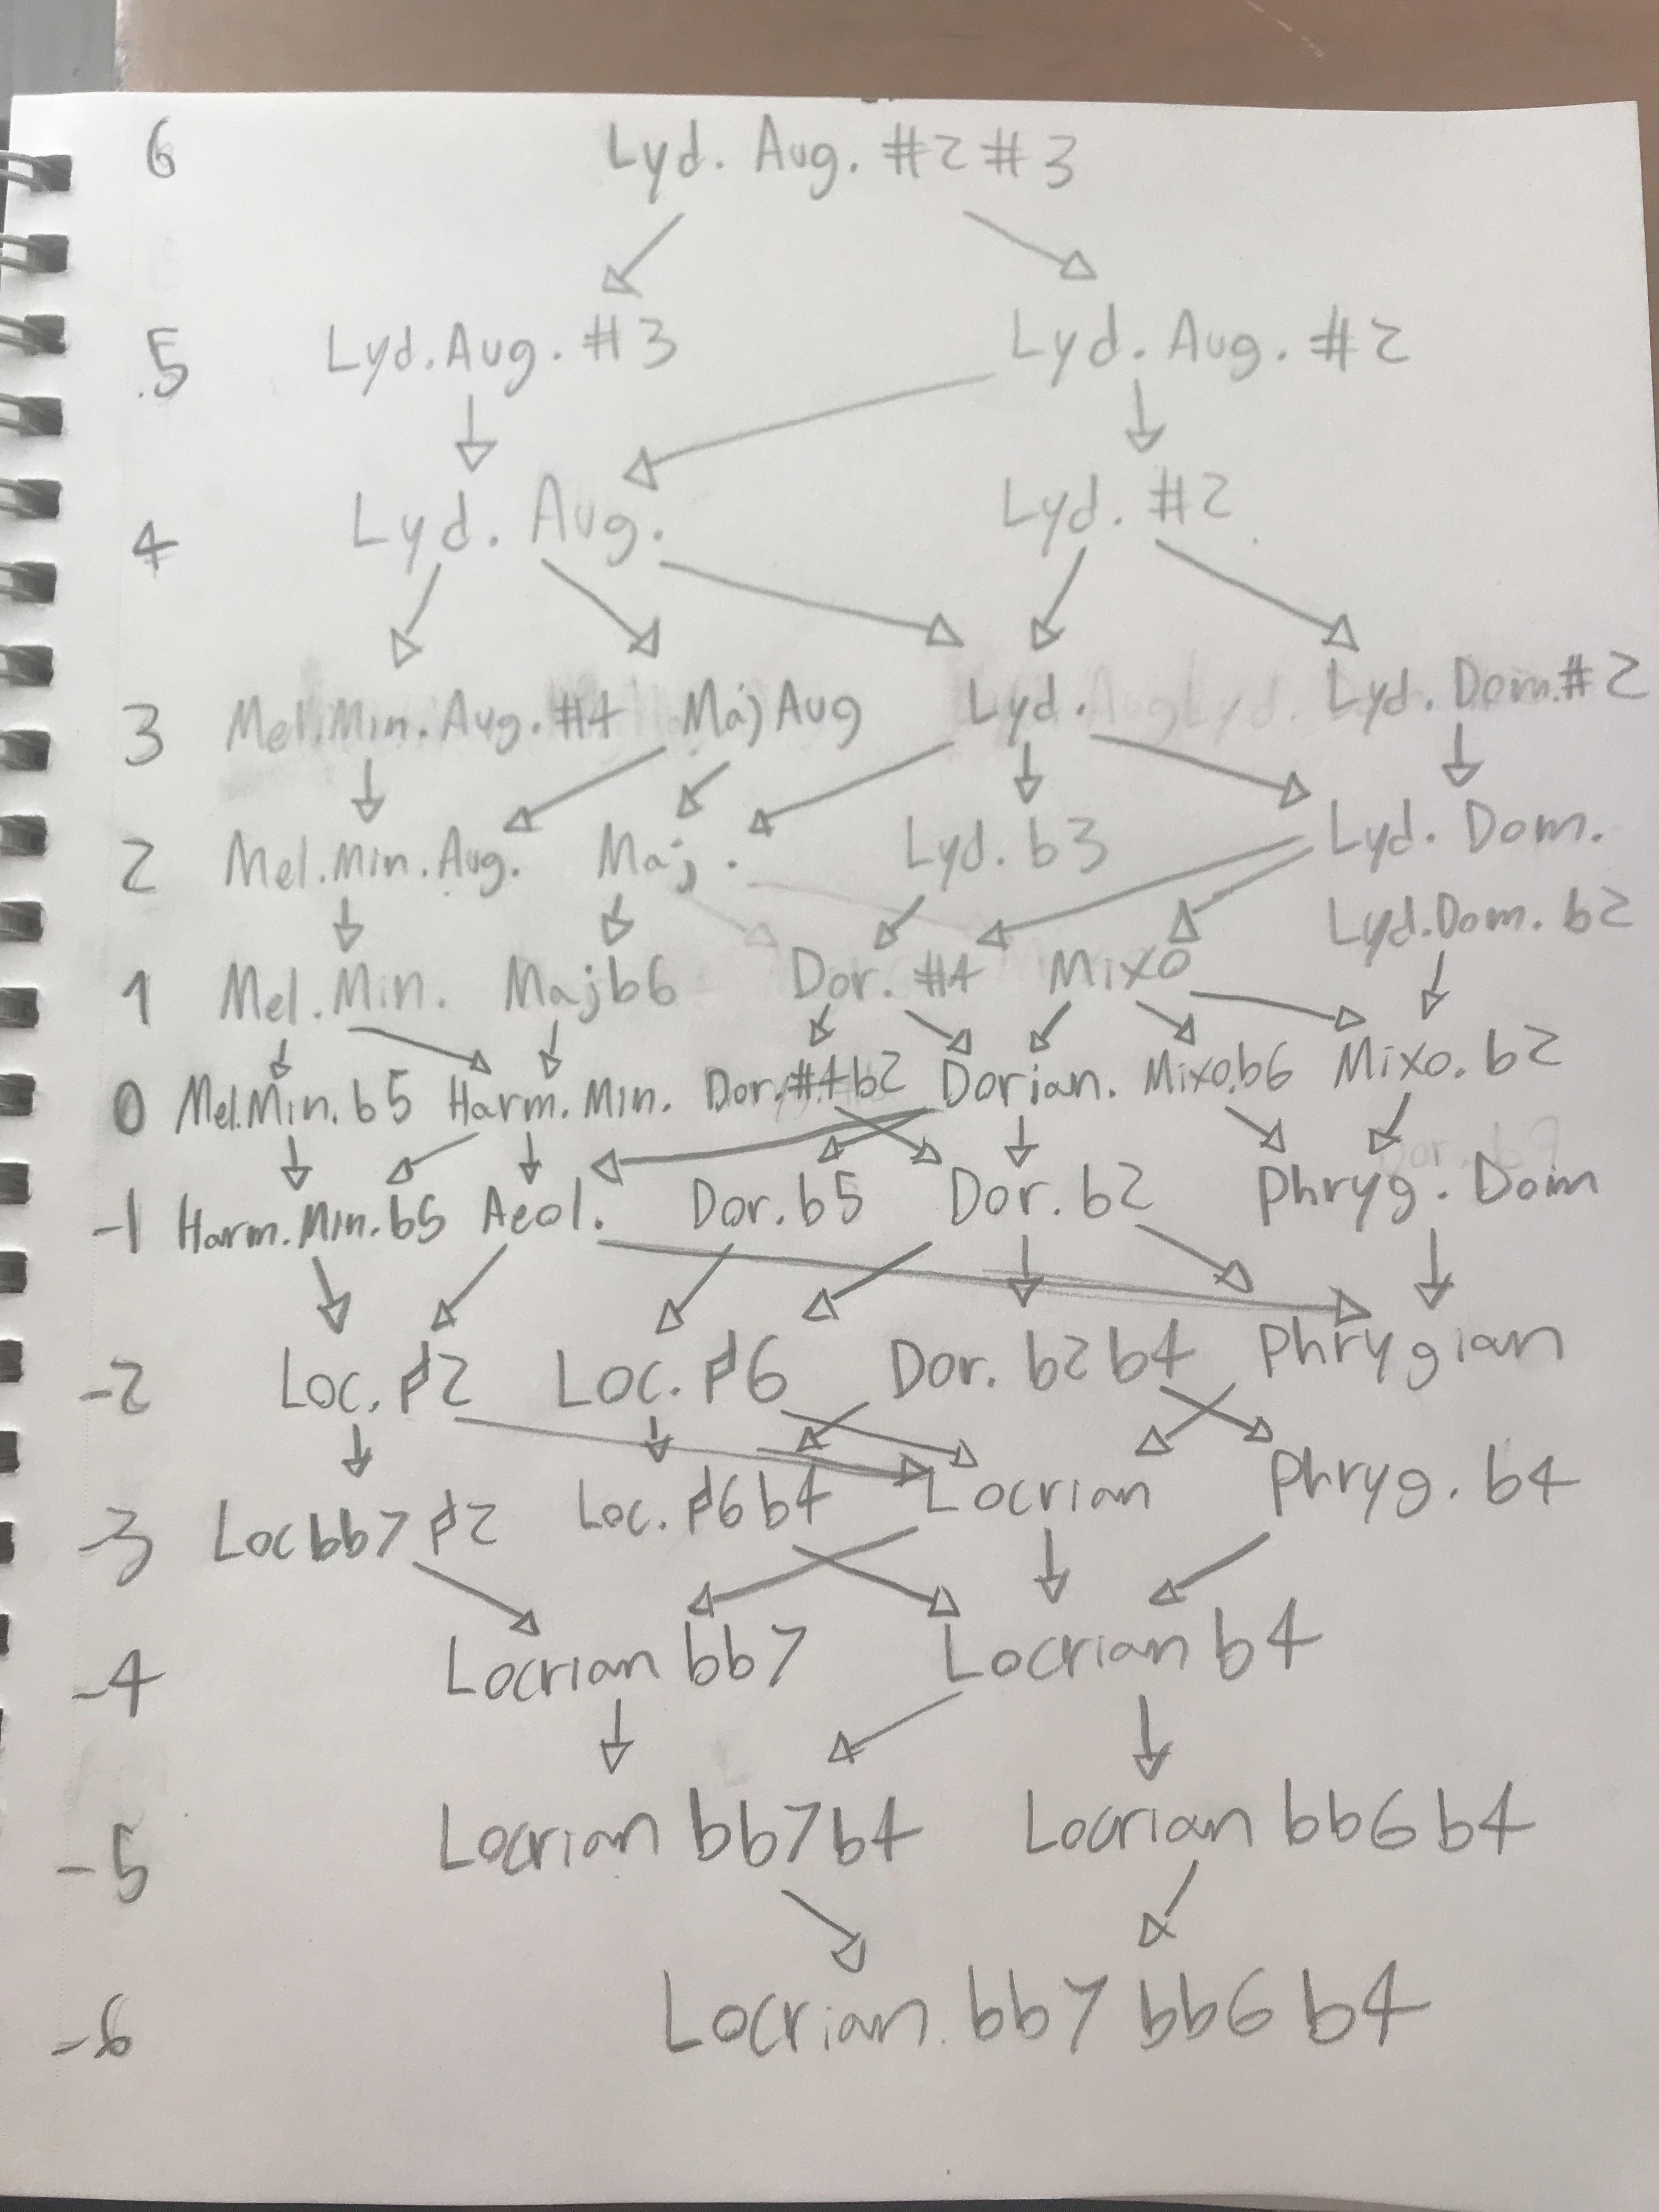 6 Lyd. Aug. #2 #3
5 Lyd. Aug. #3 Lyd. Aug. #2
4 Lyd. Aug. Lyd. #2
3 Mel.Min. Aug. #4 Maj Aug Lyd. Lyd. Dom.#2
2 Mel.Min.Aug. Maj. Lyd. b3 Lyd. Dom.
Lyd.Dom. b2
1 Mel.Min. Majb6 Dor. #4 Mixo
0 Mel.Min.b5 Harm. Min. Dor.#4b2 Dorian. Mixo.b6 Mixo.b2
-1 Harm.Min.b5 Aeol. Dor.b5 Dor.b2 Phryg. Dom
-2 Loc. ♮2 Loc. ♮6 Dor. b2 b4 Phrygian
-3 Loc bb7 ♮2 Loc. ♮6 b4 Locrian Phryg. b4
-4 Locrian bb7 Locrian b4
-5 Locrian bb7 b4 Locrian bb6 b4
-6 Locrian. bb7 bb6 b4